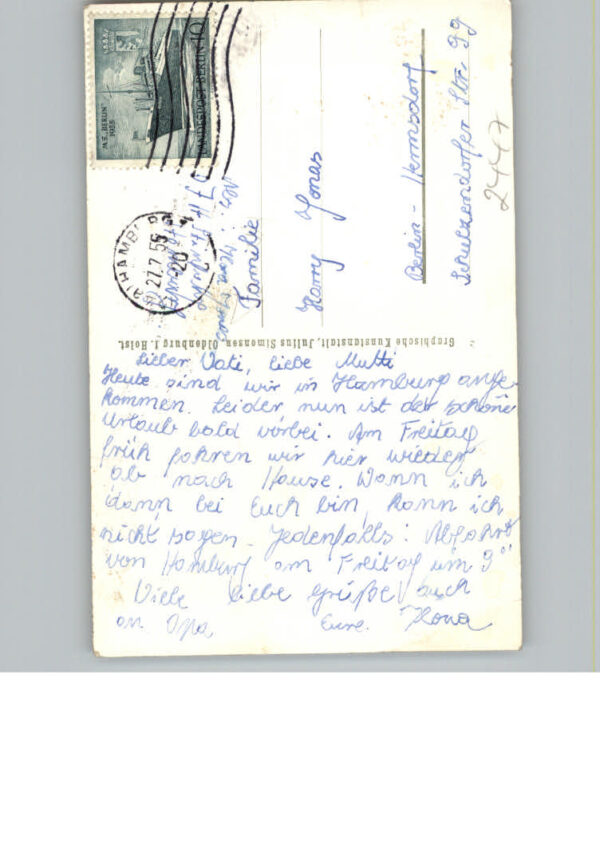 M.S. "BERLIN"
1955
LANDESPOST BERLIN 10
HAMBURG
27.7.55
-20
Familie
Harry Jonas
Berlin - Hermsdorf
Schulzendorfer Str. 99
2447
Graphische Kunstanstalt, Julius Simonsen, Oldenburg i. Holst.
Lieber Vati, liebe Mutti
Heute sind wir in Hamburg ange-
kommen. Leider nun ist der schöne
Urlaub bald vorbei. Am Freitag
früh fahren wir hier wieder
ab nach Hause. Wann ich
dann bei Euch bin, kann ich
nicht sagen. Jedenfalls: Abfahrt
von Hamburg am Freitag um 9°°
Viele liebe Grüße auch
an Opa, Eure Ilona